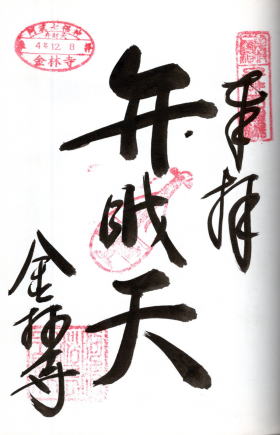 奉拝
弁財天
金林寺
弁財天
4年12.8
金林寺